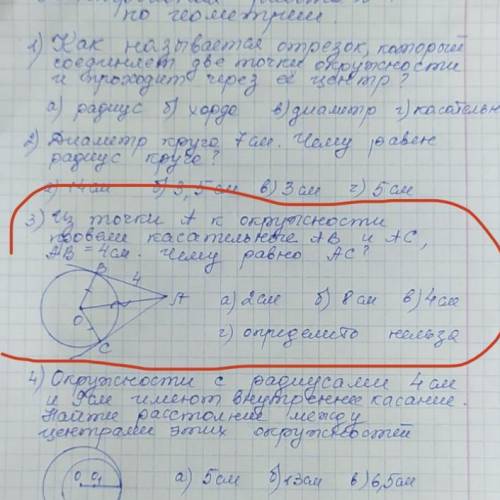 по геометрии
1) Как называется отрезок, который
соединяет две точки окружности
и проходит через её центр?
а) радиус б) хорда в) диаметр г) касательн
2) Диаметр круга 7см. Чему равен
радиус круга?
а) 14см б) 3,5см в) 3см г) 5см
3) Из точки А к окружности
провели касательные АВ и АС,
АВ = 4см. Чему равно АС?
В
4
А
О
С
а) 2см б) 8см в) 4см
г) определить нельзя
4) Окружности с радиусами 4см
и 9см имеют внутреннее касание.
Найти расстояние между
центрами этих окружностей
О О₁
а) 5см б) 13см в) 6,5см